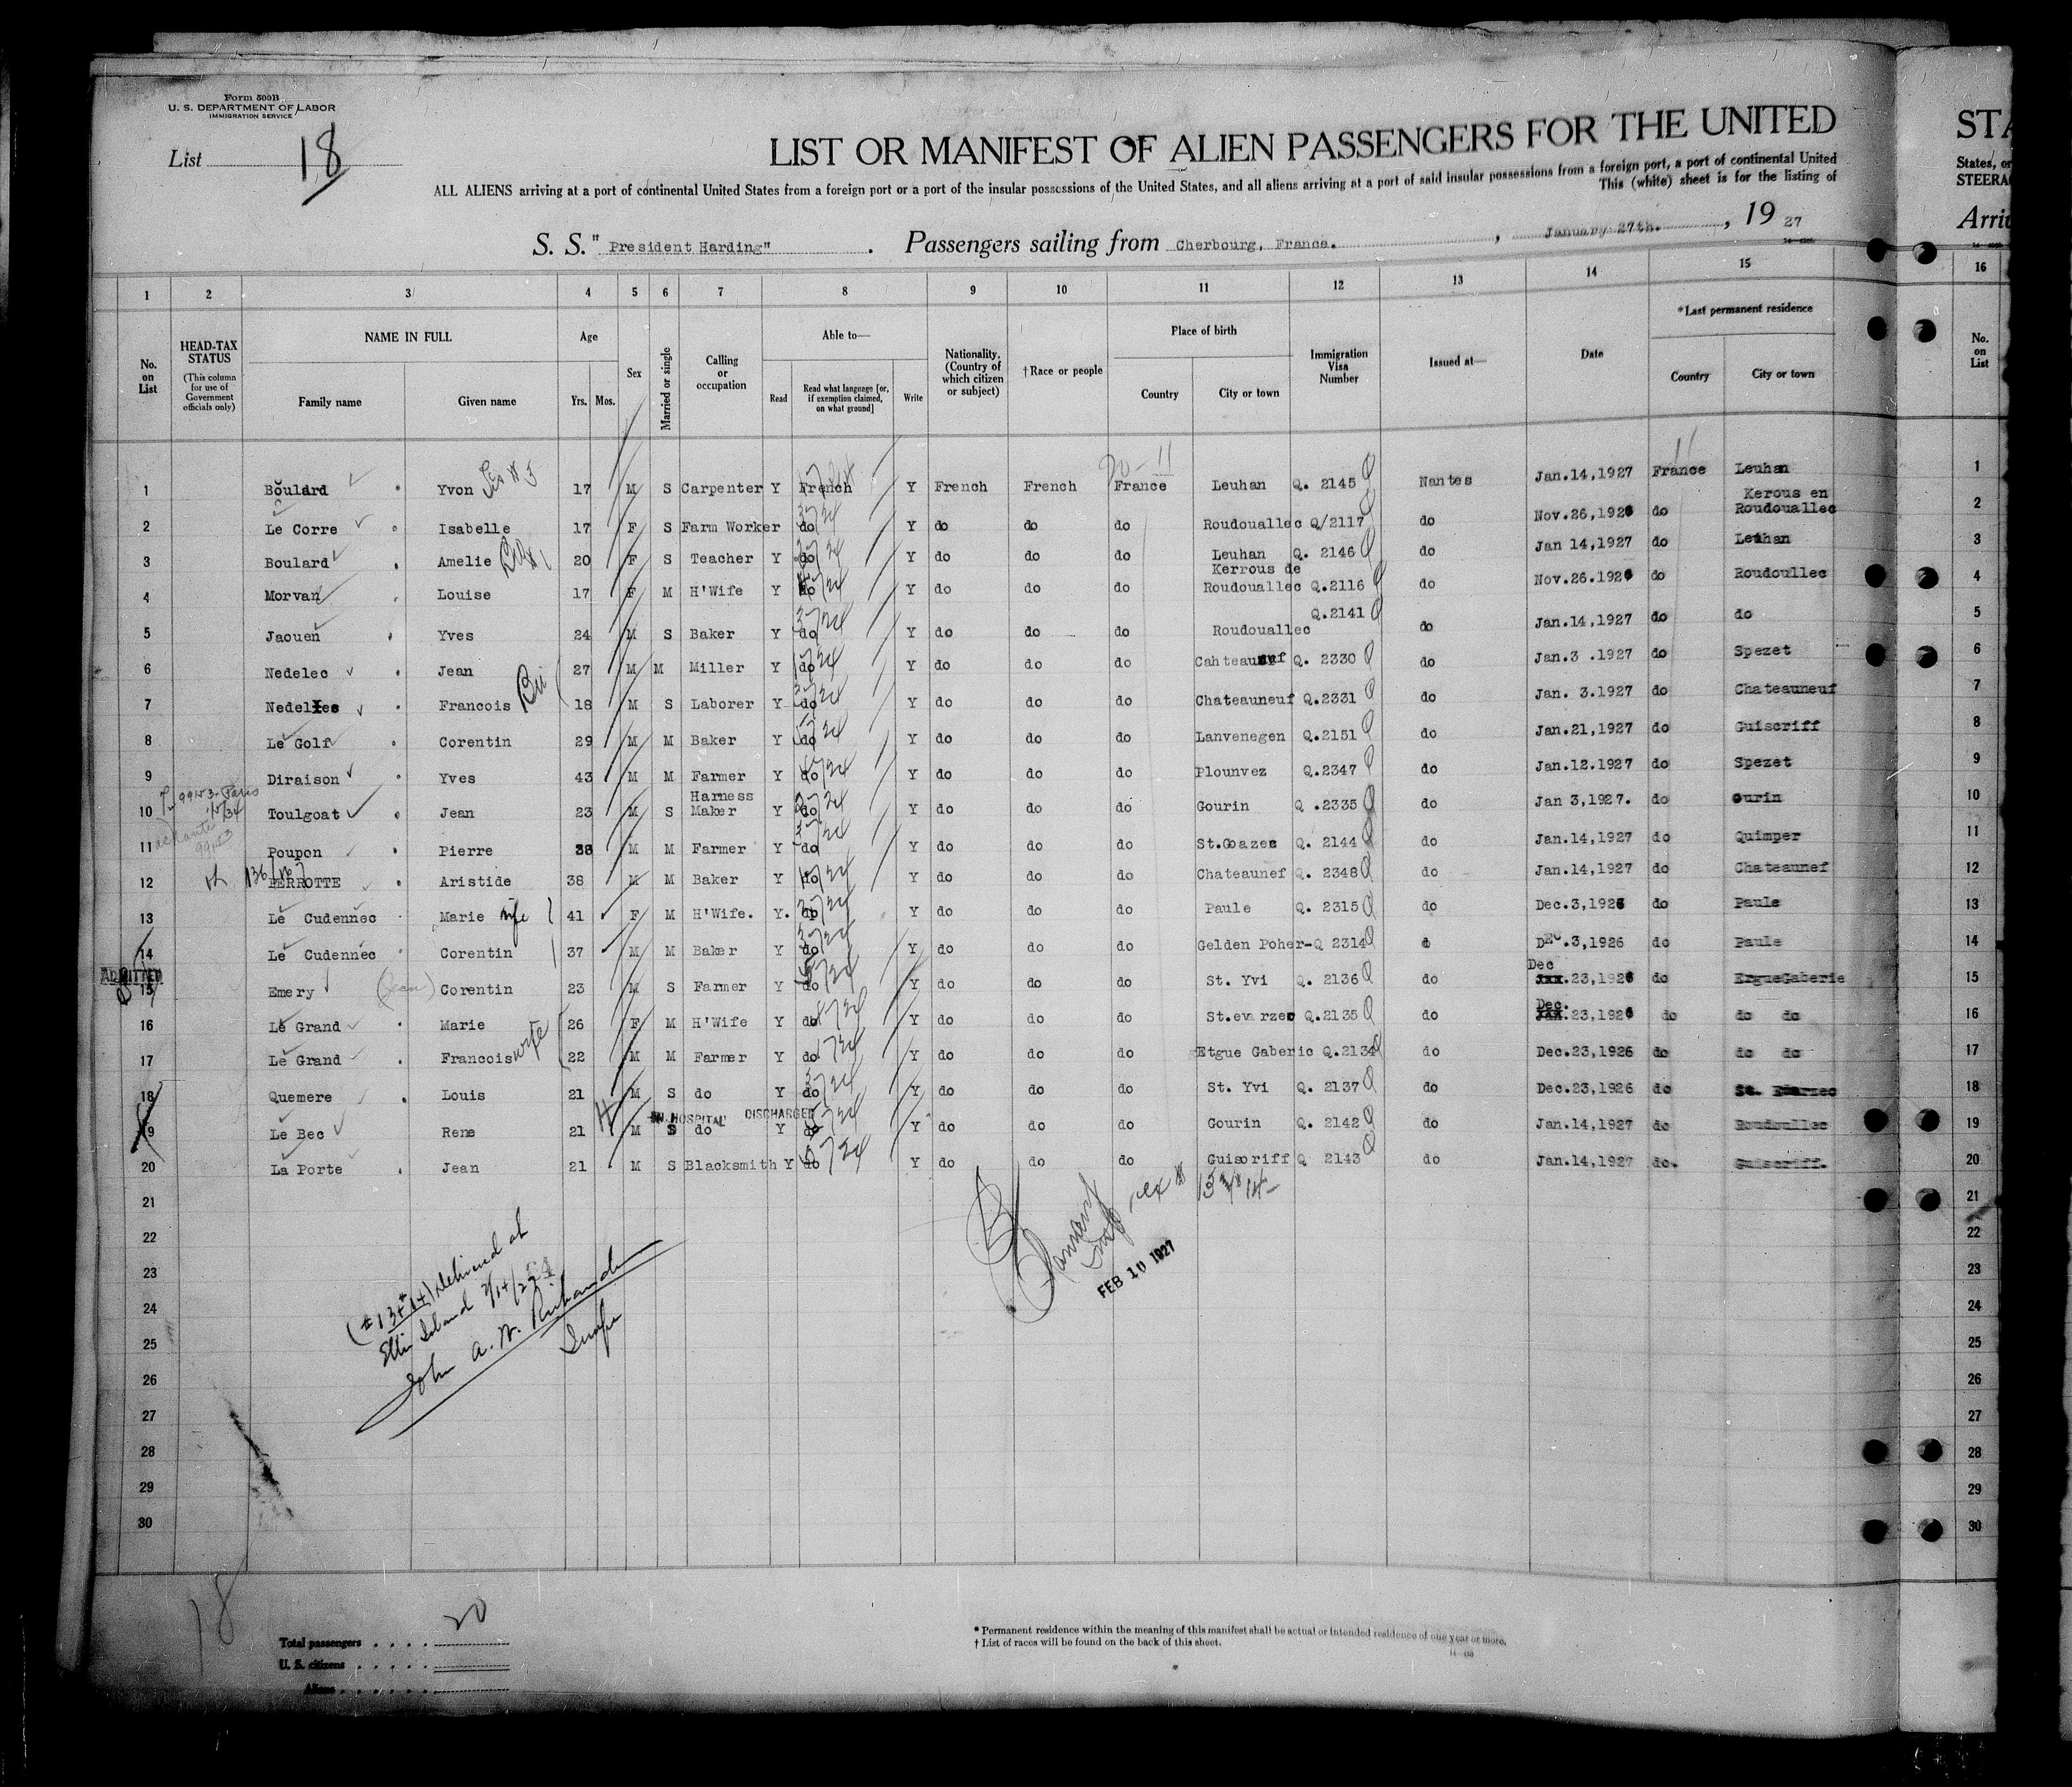 Form 500B
U. S. DEPARTMENT OF LABOR
IMMIGRATION SERVICE
List 18
LIST OR MANIFEST OF ALIEN PASSENGERS FOR THE UNITED
STA
ALL ALIENS arriving at a port of continental United States from a foreign port or a port of the insular possessions of the United States, and all aliens arriving at a port of said insular possessions from a foreign port, a port of continental United
States, or
This (white) sheet is for the listing of
STEERA
S. S. "President Harding". Passengers sailing from Cherbourg, France., January 27th., 19 27
Arriv
1 2 3 4 5 6 7 8 9 10 11 12 13 14 15 16
No. on List
HEAD-TAX STATUS
(This column for use of Government officials only)
NAME IN FULL
Family name Given name
Age
Yrs. Mos.
Sex
Married or single
Calling or occupation
Able to—
Read
Read what language [or, if exemption claimed, on what ground]
Write
Nationality. (Country of which citizen or subject)
†Race or people
Place of birth
Country City or town
Immigration Visa Number
Issued at—
Date
*Last permanent residence
Country City or town
No. on List
20-11
1 Boulard Yvon 17 M S Carpenter Y French Y French French France Leuhan Q. 2145 Nantes Jan.14,1927 France Leuhan 1
2 Le Corre Isabelle 17 F S Farm Worker Y do Y do do do Roudouallec Q/2117 do Nov.26,1926 do Kerous en Roudouallec 2
3 Boulard Amelie 20 F S Teacher Y do Y do do do Leuhan Q. 2146 do Jan 14,1927 do Leuhan 3
4 Morvan Louise 17 F M H'Wife Y do Y do do do Kerrous de Roudouallec Q.2116 do Nov.26.1926 do Roudoullec 4
5 Jaouen Yves 24 M S Baker Y do Y do do do Roudouallec Q.2141 do Jan.14,1927 do do 5
6 Nedelec Jean 27 M M Miller Y do Y do do do Q. 2330 do Jan.3 .1927 do Spezet 6
7 Francois 18 M S Laborer Y do Y do do do Chateauneuf Q.2331 do Jan. 3.1927 do Chateauneuf 7
8 Le Golf Corentin 29 M M Baker Y do Y do do do Lanvenegen Q.2151 do Jan.21,1927 do Guiscriff 8
9 Diraison Yves 43 M M Farmer Y do Y do do do Plounvez Q.2347 do Jan.12.1927 do Spezet 9
10 Toulgoat Jean 23 M S Harness Maker Y do Y do do do Gourin Q .2335 do Jan 3,1927. do ourin 10
11 Poupon Pierre 38 M M Farmer Y do Y do do do St.Goazec Q. 2144 do Jan.14,1927 do Quimper 11
12 PERROTTE Aristide 38 M M Baker Y do Y do do do Chateaunef Q. 2348 do Jan.14,1927 do Chateaunef 12
13 Le Cudennec Marie wife 41 F M H'Wife. Y. do Y do do do Paule Q. 2315 do Dec.3,1926 do Paule 13
14 Le Cudennec Corentin 37 M M Baker Y do Y do do do Gelden Poher-Q 2314 d Dec.3,1926 do Paule 14
ADMITTED
15 Emery (Jean) Corentin 23 M S Farmer Y do Y do do do St. Yvi Q. 2136 do Dec .23,1926 do ErgueGaberie 15
16 Le Grand Marie wife 26 F M H'Wife Y do Y do do do Q.2135 do Dec. .23,1926 do do do 16
17 Le Grand Francois 22 M M Farmer Y do Y do do do Etgue Gaberic Q.2134 do Dec.23,1926 do do do 17
18 Quemere Louis 21 M S do Y do Y do do do St. Yvi Q. 2137 do Dec.23,1926 do St. 18
IN HOSPITAL DISCHARGED
19 Le Bec Rene 21 M S do Y do Y do do do Gourin Q. 2142 do Jan.14,1927 do Roudoullec 19
20 La Porte Jean 21 M S Blacksmith Y do Y do do do Guiscriff Q 2143 do Jan.14,1927 do. Guiscriff. 20
21 21
22 22
23 23
24 24
25 25
26 26
27 27
28 28
29 29
30 30
FEB 10 1927
(#13+14) Delivered at
Ellis Island 2/14/27
John A. W. Richards
Insp
18
Total passengers . . . . 20
U. S. citizens . . . . .
Aliens . . . . . .
* Permanent residence within the meaning of this manifest shall be actual or intended residence of one year or more.
† List of races will be found on the back of this sheet.